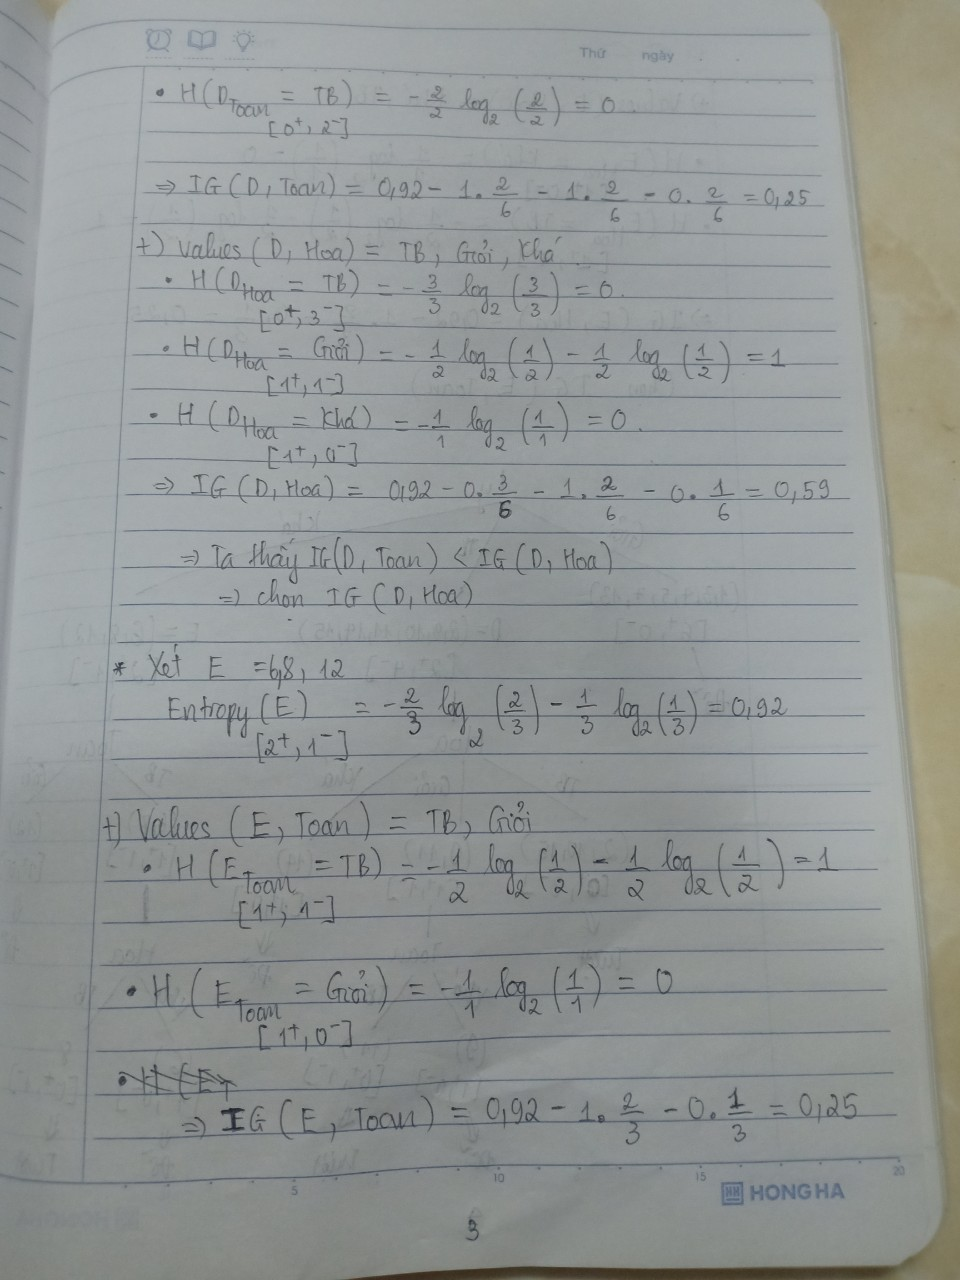 Thứ ngày . .
• H(D_Toan = TB) = -2/2 log_2 (2/2) = 0
[0^+, 2^-]
⇒ IG(D, Toan) = 0,92 - 1.2/6 - 1.2/6 - 0.2/6 = 0,25
+) Values (D, Hoa) = TB, Giỏi, Khá
• H(D_Hoa = TB) = -3/3 log_2 (3/3) = 0.
[0^+, 3^-]
• H(D_Hoa = Giỏi) = -1/2 log_2 (1/2) - 1/2 log_2 (1/2) = 1
[1^+, 1^-]
• H(D_Hoa = Khá) = -1/1 log_2 (1/1) = 0.
[1^+, 0^-]
⇒ IG(D, Hoa) = 0,92 - 0.3/6 - 1.2/6 - 0.1/6 = 0,59
⇒ Ta thấy IG(D, Toan) < IG(D, Hoa)
⇒ chọn IG(D, Hoa)
* Xét E = 6,8, 12
Entropy(E) = -2/3 log_2 (2/3) - 1/3 log_2 (1/3) = 0,92
[2^+, 1^-]
+) Values (E, Toan) = TB, Giỏi
• H(E_Toan = TB) = -1/2 log_2 (1/2) - 1/2 log_2 (1/2) = 1
[1^+, 1^-]
• H(E_Toan = Giỏi) = -1/1 log_2 (1/1) = 0
[1^+, 0^-]
• H(E_T
⇒ IG(E, Toan) = 0,92 - 1.2/3 - 0.1/3 = 0,25
5 10 15 20
HH HONG HA
3